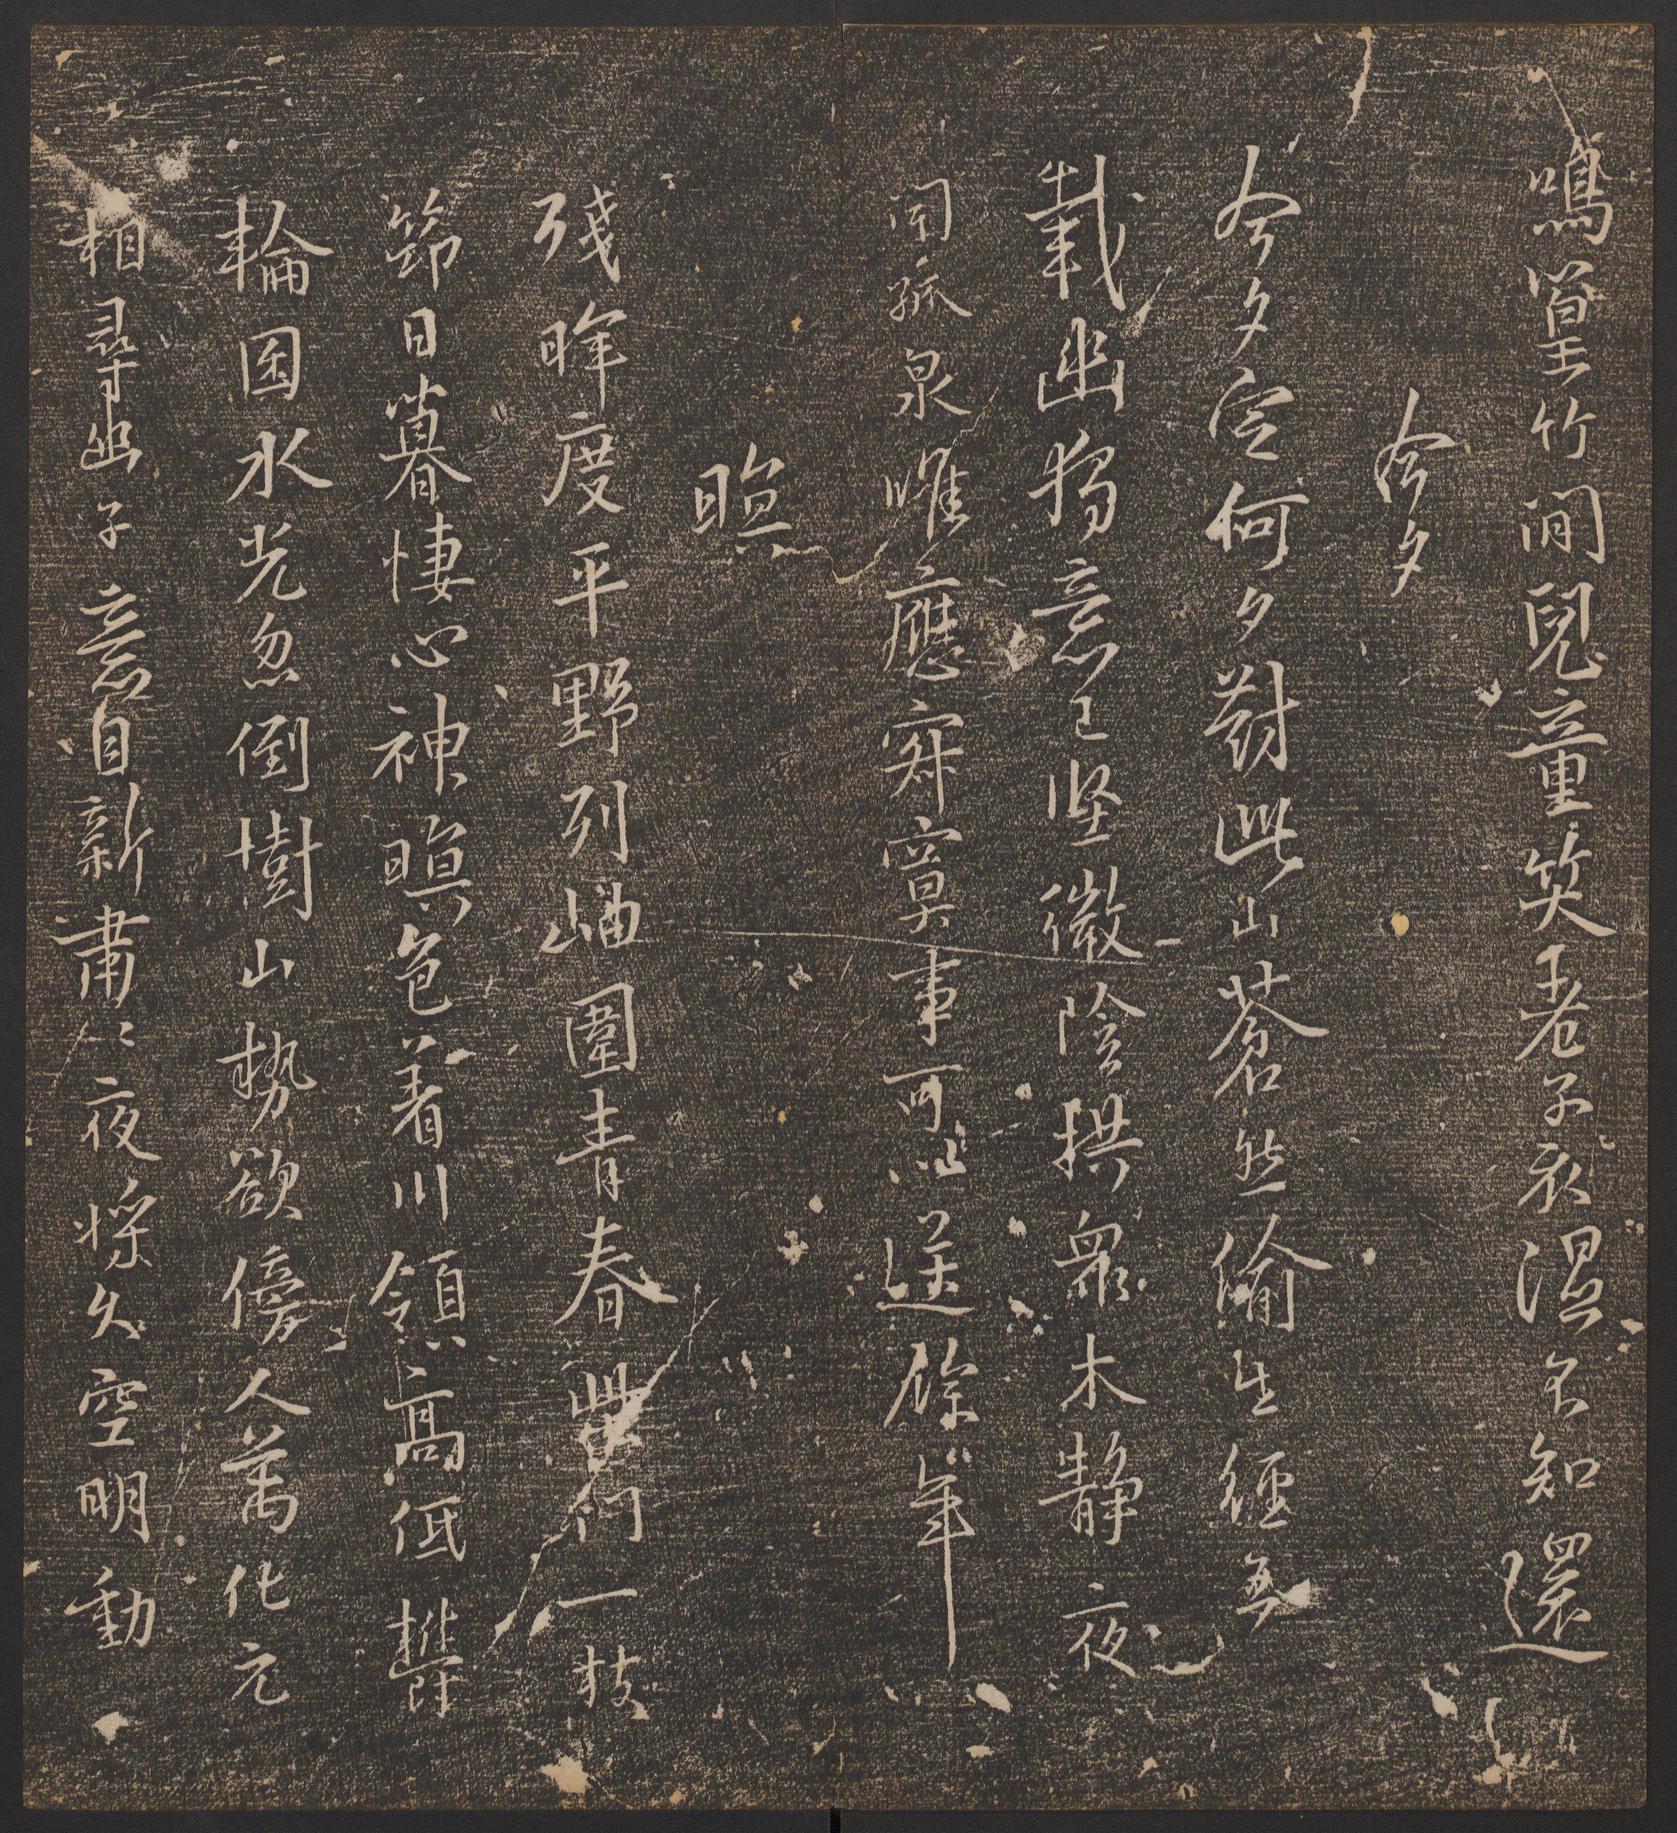 鳴篁竹間兒童笑老子衣濕不知還
今夕
今夕定何夕對此山蒼然偷生經五
載幽獨意已堅微陰拱衆木靜夜
聞孤泉唯應寂寞事可以送餘年
暝
殘暉度平野列岫圍青春柴門一枝
節日暮悽心神暝色著川嶺高低鬱
輪囷水光忽倒樹山勢欲傍人萬化元
相尋幽子意自新肅〻夜將久空明動